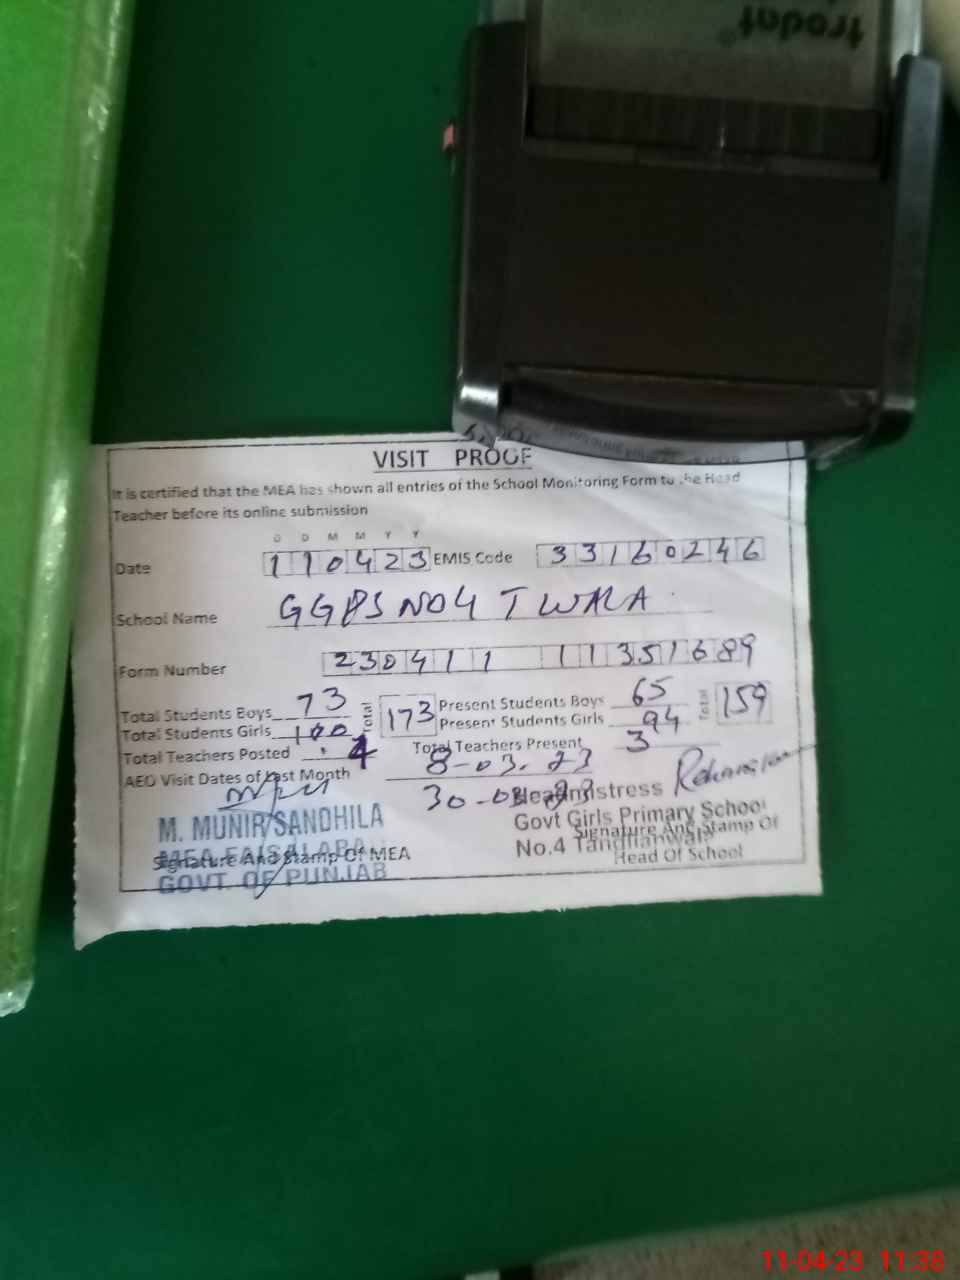 trodat®
VISIT PROOF
It is certified that the MEA has shown all entries of the School Monitoring Form to the Head
Teacher before its online submission
D D M M Y Y
Date 110423 EMIS Code 33160246
School Name GGPS NO4 TWALA
Form Number 230411 11351689
Total Students Boys 73 Total 173 Present Students Boys 65 Total 159
Total Students Girls 100 Present Students Girls 94
Total Teachers Posted 4 Total Teachers Present 3
AEO Visit Dates of Last Month 8-03-23
30-03-23
Headmistress
Govt Girls Primary School
No.4 Tandlianwala
Signature And Stamp Of
Head Of School
M. MUNIR SANDHILA
MEA FAISALABAD
GOVT. OF PUNJAB
Signature And Stamp Of MEA
11-04-23 11:38